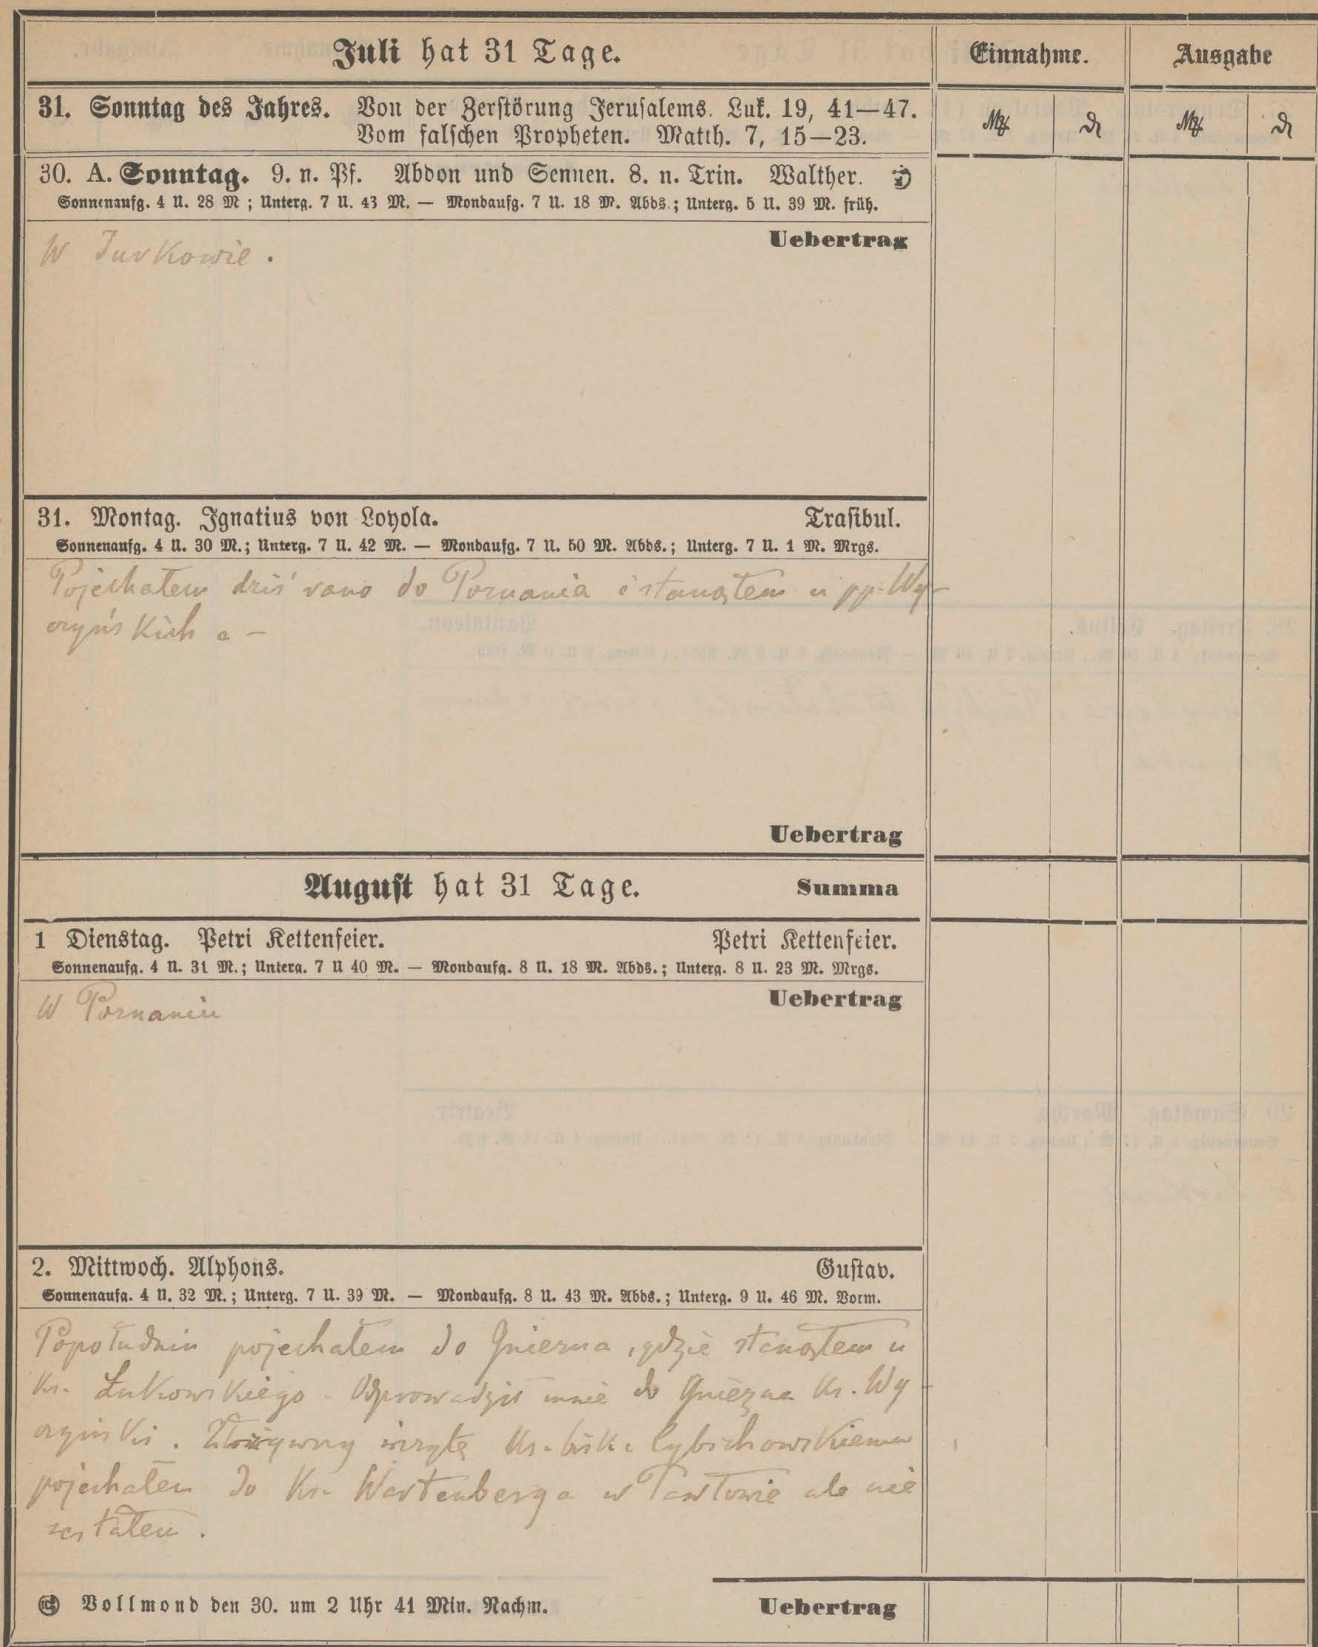 Juli hat 31 Tage. Einnahme. Ausgabe
31. Sonntag des Jahres. Von der Zerstörung Jerusalems. Luk. 19, 41—47.
Vom falschen Propheten. Matth. 7, 15—23.
30. A. Sonntag. 9. n. Pf. Abdon und Sennen. 8. n. Trin. Walther.
Sonnenaufg. 4 U. 28 M; Unterg. 7 U. 43 M. — Mondaufg. 7 U. 18 M. Abds.; Unterg. 5 U. 39 M. früh.
Uebertrag
W Jurkowie.
31. Montag. Ignatius von Loyola. Trasibul.
Sonnenaufg. 4 U. 30 M.; Unterg. 7 U. 42 M. — Mondaufg. 7 U. 50 M. Abds.; Unterg. 7 U. 1 M. Mrgs.
Pojechałem dziś rano do Poznania i stanąłem u pp. Wy-
czyńskich. —
Uebertrag
August hat 31 Tage. Summa
1 Dienstag. Petri Kettenfeier. Petri Kettenfeier.
Sonnenaufg. 4 U. 31 M.; Unterg. 7 U 40 M. — Mondaufg. 8 U. 18 M. Abds.; Unterg. 8 U. 23 M. Mrgs.
Uebertrag
W Poznaniu
2. Mittwoch. Alphons. Gustav.
Sonnenaufg. 4 U. 32 M.; Unterg. 7 U. 39 M. — Mondaufg. 8 U. 43 M. Abds.; Unterg. 9 U. 46 M. Vorm.
Popołudniu pojechałem do Gniezna, gdzie stanąłem u
ks. Łukowskiego. Odprowadził mnie do Gniezna ks. Wy-
czyński. Złożywszy wizytę ks. bisk. Cybichowskiemu
pojechałem do ks. Wartenberga w Pawłowie ale nie
zastałem.
Vollmond den 30. um 2 Uhr 41 Min. Nachm. Uebertrag